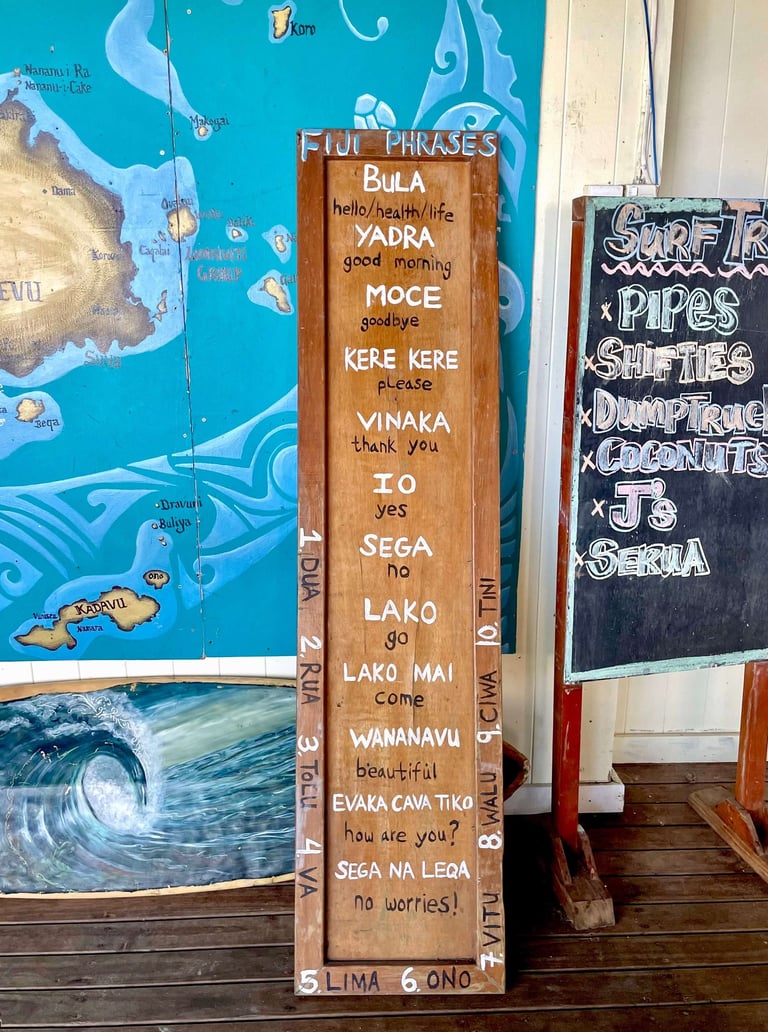 Koro
Nananu-i Ra
Nananu-i-Cake
Makogai
Dama
EVU
Beqa
Dravuni
Buliya
ONO
KADAVU
FIJI PHRASES
BULA
hello/health/life
YADRA
good morning
MOCE
goodbye
KERE KERE
please
VINAKA
thank you
IO
yes
SEGA
no
LAKO
go
LAKO MAI
come
WANANAVU
beautiful
EVAKA CAVA TIKO
how are you?
SEGA NA LEQA
no worries!
1. DUA
2. RUA
3. TOLU
4. VA
5. LIMA 6. ONO
7. VITU
8. WALU
9. CIWA
10. TINI
SURF TR
x PIPES
x SHIFTIES
x DUMPTRUC
x COCONUTS
x J's
x SERUA